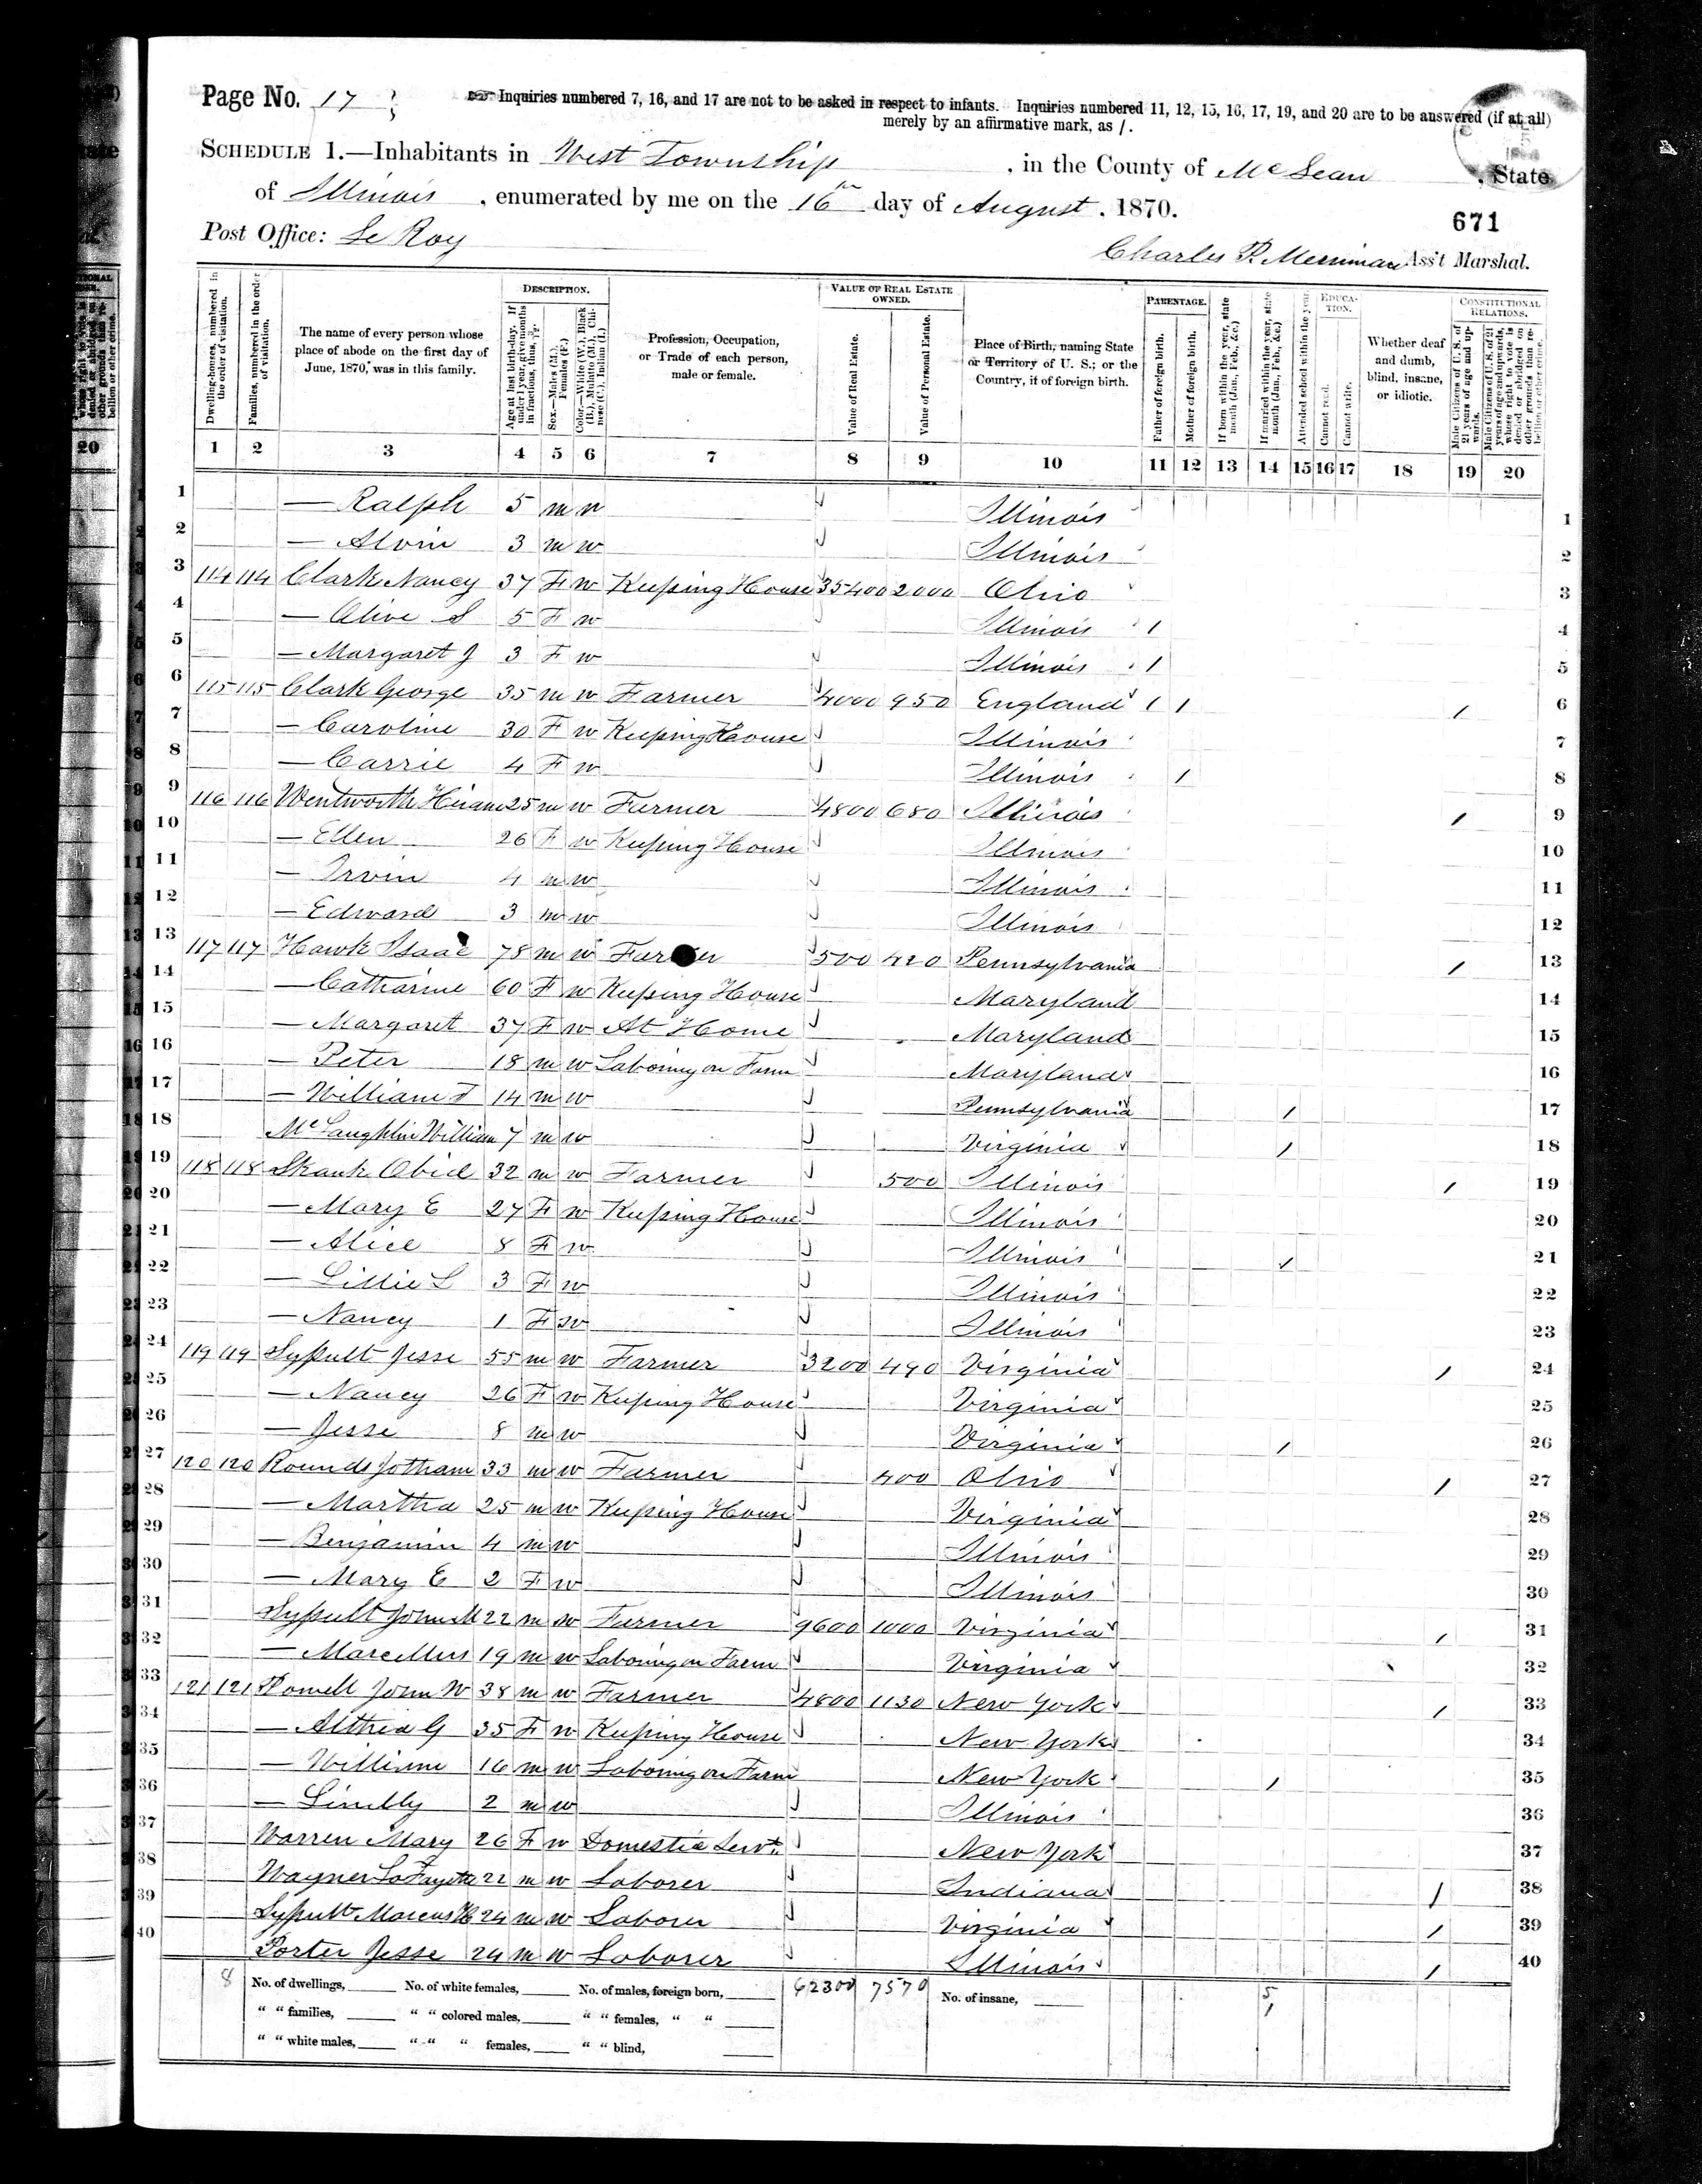 Page No. 17
Inquiries numbered 7, 16, and 17 are not to be asked in respect to infants. Inquiries numbered 11, 12, 15, 16, 17, 19, and 20 are to be answered (if at all)
merely by an affirmative mark, as /.
SCHEDULE 1.—Inhabitants in West Township, in the County of McLean, State
of Illinois, enumerated by me on the 16th day of August, 1870.
671
Post Office: Le Roy
Charles R. Merriman Ass't Marshal.
Dwelling-houses, numbered in the order of visitation.
Families, numbered in the order of visitation.
The name of every person whose place of abode on the first day of June, 1870, was in this family.
DESCRIPTION.
Age at last birth-day. If under 1 year, give months in fractions, thus, 3/12.
Sex.—Males (M.), Females (F.)
Color.—White (W.), Black (B.), Mulatto (M.), Chinese (C.), Indian (I.)
Profession, Occupation, or Trade of each person, male or female.
VALUE OF REAL ESTATE OWNED.
Value of Real Estate.
Value of Personal Estate.
Place of Birth, naming State or Territory of U. S.; or the Country, if of foreign birth.
PARENTAGE.
Father of foreign birth.
Mother of foreign birth.
If born within the year, state month (Jan., Feb., &c.)
If married within the year, state month (Jan., Feb., &c.)
EDUCATION.
Attended school within the year.
Cannot read.
Cannot write.
Whether deaf and dumb, blind, insane, or idiotic.
CONSTITUTIONAL RELATIONS.
Male Citizens of U. S. of 21 years of age and upwards.
Male Citizens of U. S. of 21 years of age and upwards, whose right to vote is denied or abridged on other grounds than rebellion or other crime.
1 2 3 4 5 6 7 8 9 10 11 12 13 14 15 16 17 18 19 20
1 — Ralph 5 m w Illinois 1
2 — Alvin 3 m w Illinois 2
3 114 114 Clark Nancy 37 F w Keeping House 35400 2000 Ohio 3
4 — Olive S 5 F w Illinois / 4
5 — Margaret J 3 F w Illinois / 5
6 115 115 Clark George 35 m w Farmer 4000 950 England / / / 6
7 — Caroline 30 F w Keeping House Illinois 7
8 — Carrie 4 F w Illinois / 8
9 116 116 Wentworth Hiram 25 m w Farmer 4800 680 Illinois / 9
10 — Ellen 26 F w Keeping House Illinois 10
11 — Irvin 4 m w Illinois 11
12 — Edward 3 m w Illinois 12
13 117 117 Hawk Isaac 78 m w Farmer 500 420 Pennsylvania / 13
14 — Catharine 60 F w Keeping House Maryland 14
15 — Margaret 37 F w At Home Maryland 15
16 — Peter 18 m w Laboring on Farm Maryland 16
17 — William T 14 m w Pennsylvania / 17
18 McLaughlin William 7 m w Virginia / 18
19 118 118 Skank Obid 32 m w Farmer 500 Illinois / 19
20 — Mary E 27 F w Keeping House Illinois 20
21 — Alice 8 F w Illinois / 21
22 — Lillie L 3 F w Illinois 22
23 — Nancy 1 F w Illinois 23
24 119 119 Sypult Jesse 55 m w Farmer 3200 490 Virginia / 24
25 — Nancy 26 F w Keeping House Virginia 25
26 — Jesse 8 m w Virginia / 26
27 120 120 Rounds Jotham 33 m w Farmer 400 Ohio / 27
28 — Martha 25 m w Keeping House Virginia 28
29 — Benjamin 4 m w Illinois 29
30 — Mary E 2 F w Illinois 30
31 Sypult John M 22 m w Farmer 9600 1000 Virginia / 31
32 — Marcellus 19 m w Laboring on Farm Virginia 32
33 121 121 Powell John W 38 m w Farmer 4800 1130 New York / 33
34 — Althea G 35 F w Keeping House New York 34
35 — William 16 m w Laboring on Farm New York / 35
36 — 2 m w Illinois 36
37 Warren Mary 26 F w Domestic Servt. New York 37
38 Wagner LaFayette 22 m w Laborer Indiana / 38
39 Sypult Marcus H 24 m w Laborer Virginia / 39
40 Porter Jesse 24 m w Laborer Illinois / 40
8 No. of dwellings, No. of white females, No. of males, foreign born, 62300 7570 No. of insane, 5
" " families, " " colored males, " " females, " " 1
" " white males, " " " females, " " blind,